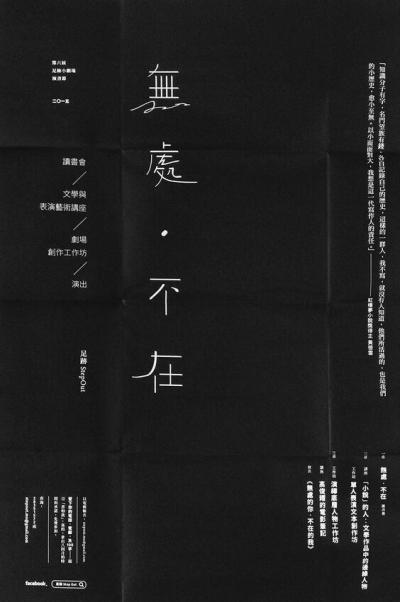 「知識分子有字，名門望族有錢，各自記錄自己的歷史，這樣的一群人，我不寫，就沒有人知道，他們所活過的，也是我們
的小歷史，愈小至無。以小面面對大，我想是這一代寫作人的責任。」
紅樓夢小說獎得主 黃碧雲
無處・不在
第六屆
足跡小劇場
演書節
二〇一五
讀書會
文學與
表演藝術講座
劇場
創作工作坊
演出
足跡 Step Out
無處・不在
「小說」的人：文學作品中的邊緣人物
單人表演文本創作坊
演繹底層人物工作坊
高俊耀的觀影筆記
《無處的你，不在的我》
facebook.
足跡 Step Out